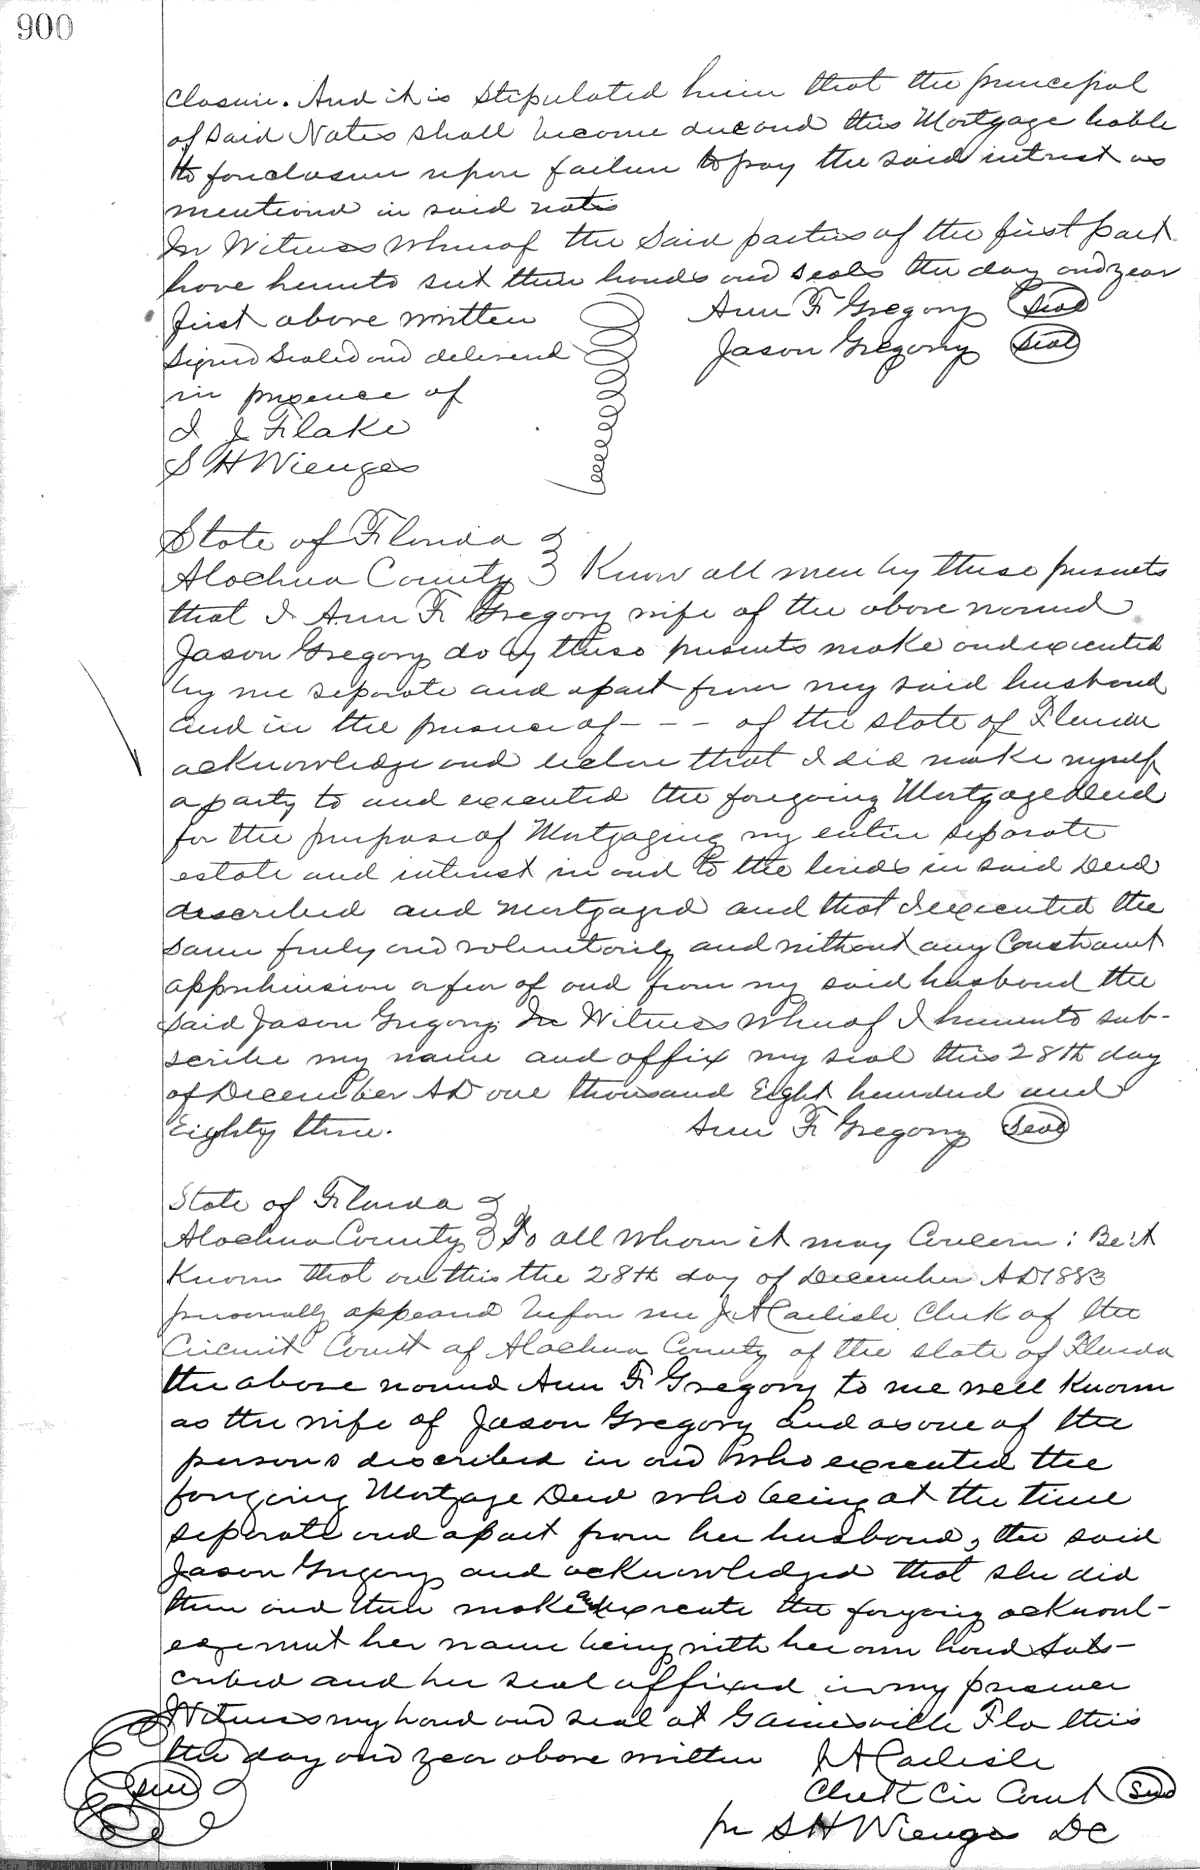 900
closure. And it is stipulated herein that the principal
of said Notes shall become due and this Mortgage liable
to foreclosure upon failure to pay the said interest as
mentioned in said notes
In Witness whereof the said parties of the first part
have hereunto set their hands and seals the day and year
first above written
Ann F Gregory (Seal)
Jason Gregory (Seal)
Signed Sealed and delivered
in presence of
I J Flake
S H Wienges
State of Florida
Alachua County } Know all men by these presents
that I Ann F Gregory wife of the above named
Jason Gregory do by these presents make and executed
by me separate and apart from my said husband
and in the presence of - - - of the state of Florida
acknowledge and declare that I did make myself
a party to and executed the foregoing Mortgage Deed
for the purpose of Mortgaging my entire separate
estate and interest in and to the lands in said Deed
described and Mortgaged and that I executed the
same freely and voluntarily and without any Constraint
apprehension or fear of and from my said husband the
said Jason Gregory. In Witness whereof I hereunto sub-
scribe my name and affix my seal this 28th day
of December AD one thousand Eight hundred and
Eighty three.
Ann F Gregory (Seal)
State of Florida
Alachua County } To all whom it may Concern: Be it
Known that on this the 28th day of December AD 1883
personally appeared before me J A Carlisle Clerk of the
Circuit Court of Alachua County of the state of Florida
the above named Ann F Gregory to me well known
as the wife of Jason Gregory and as one of the
persons described in and who executed the
foregoing Mortgage Deed who being at the time
separate and apart from her husband, the said
Jason Gregory and acknowledged that she did
then and there make and execute the forgoing acknowl-
egemut her name being with her own hand subs-
cribed and her seal affixed in my presence
Witness my hand and seal at Gainesville Fla this
the day and year above written
J A Carlisle
Seal
Clerk Cir Court (Seal)
per S H Wienges DC